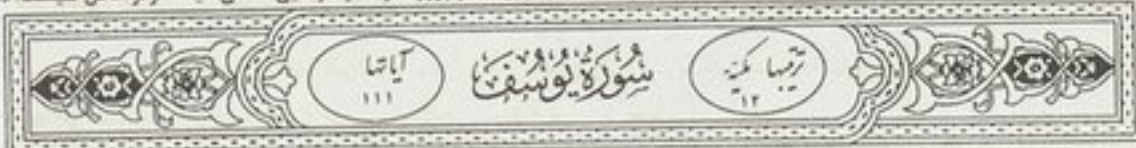 ترتيبها مكية
١٢
سُورَةُ يُوسُفَ
آياتها
١١١